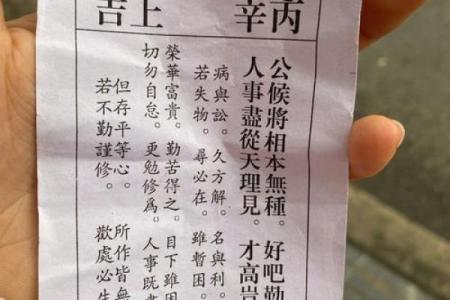 丙辛
上吉
公候將相本無種。好吧勤
人事盡從天理見。才高豈
病與訟。久方解。名與利。
若失物。尋必在。雖暫困。
榮華富貴。勤苦得之。目下雖困
切勿自怠。更勉修為。人事既
但存平等心。所作皆無
若不勤謹修。歡處必生